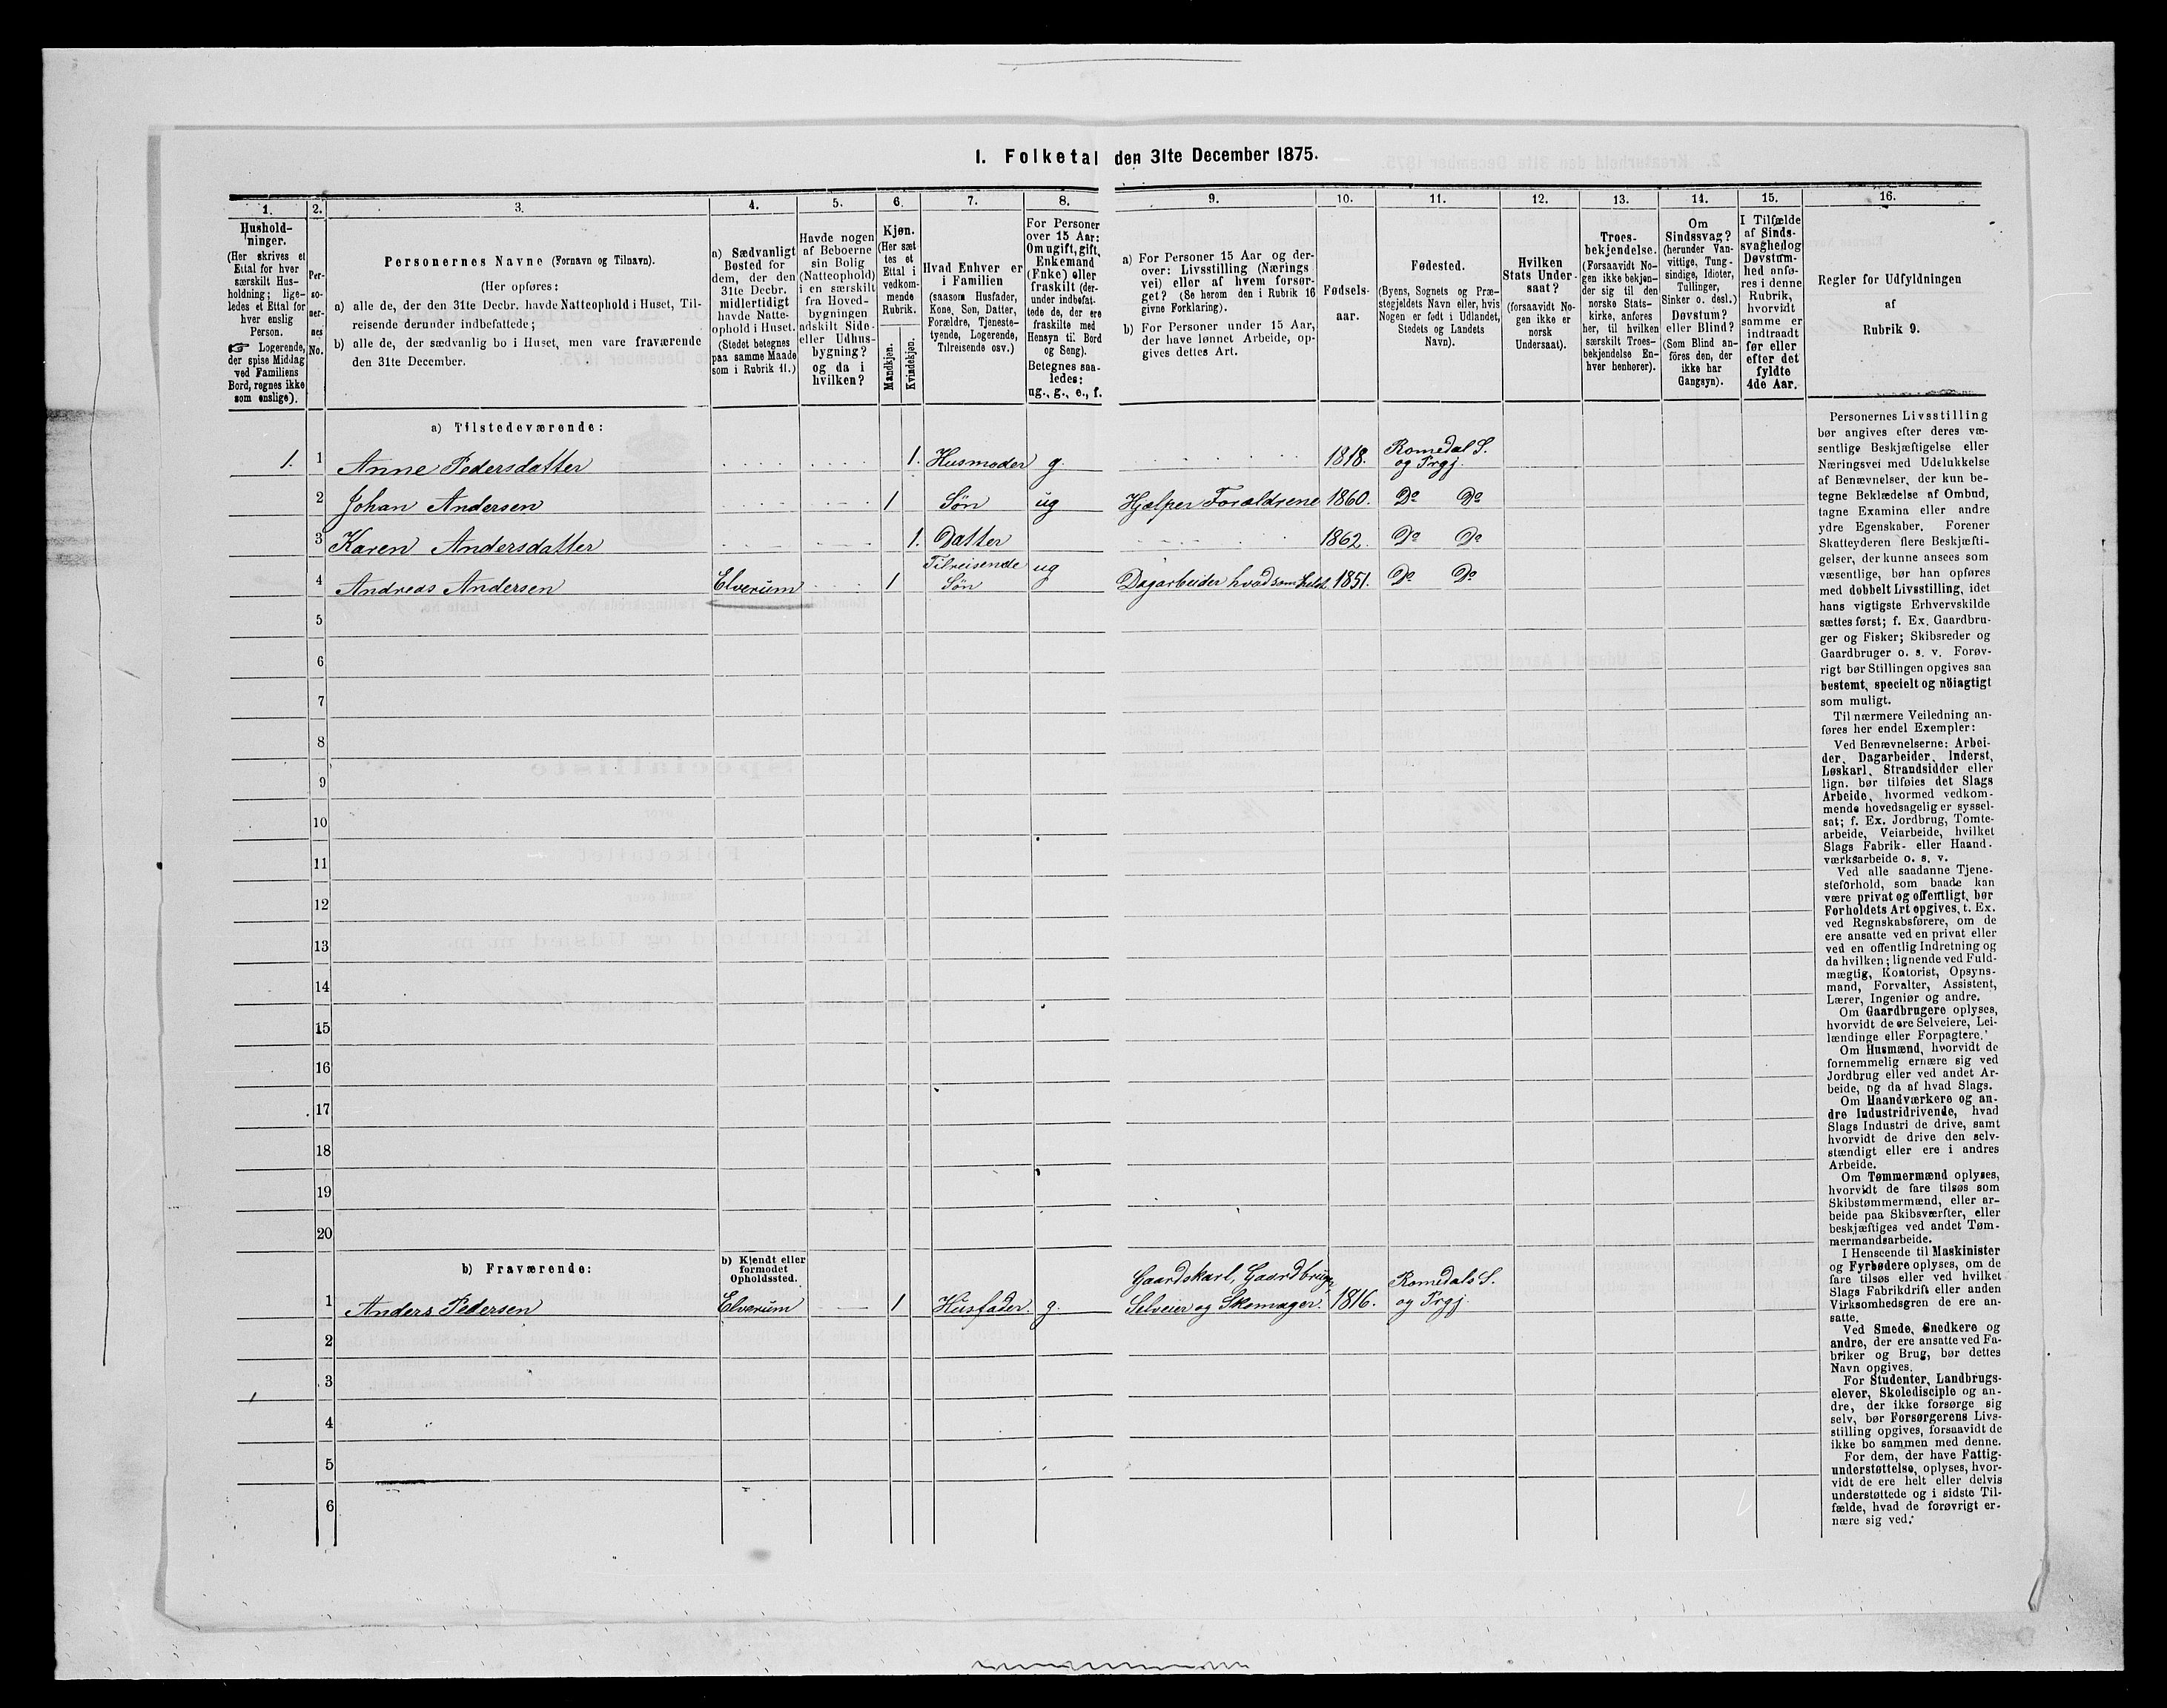 1. Folketal den 31te December 1875.
1.
2.
3.
4.
5.
6.
7.
8.
9.
10.
11.
12.
13.
14.
15.
16.
Hushold-
ninger.
(Her skrives et
Ettal for hver
særskilt Hus-
holdning; lige-
ledes et Ettal for
hver enslig
Person.
☞ Logerende,
der spise Middag
ved Familiens
Bord, regnes ikke
som enslige).
Per-
so-
ner-
nes
No.
Personernes Navne (Fornavn og Tilnavn).
(Her opføres:
a) alle de, der den 31te Decbr. havde Natteophold i Huset, Til-
reisende derunder indbefattede;
b) alle de, der sædvanlig bo i Huset, men vare fraværende
den 31te December.
a) Sædvanligt
Bosted for
dem, der den
31te Decbr.
midlertidigt
havde Natte-
ophold i Huset.
(Stedet betegnes
paa samme Maade
som i Rubrik 11.)
Havde nogen
af Beboerne
sin Bolig
(Natteophold)
i en særskilt
fra Hoved-
bygningen
adskilt Side-
eller Udhus-
bygning?
og da i
hvilken?
Kjøn.
(Her sæt
tes et
Ettal i
vedkom-
mende
Rubrik.
Mandkjøn.
Kvindekjøn.
Hvad Enhver er
i Familien
(saasom Husfader,
Kone, Søn, Datter,
Forældre, Tjeneste-
tyende, Logerende,
Tilreisende osv.)
For Personer
over 15 Aar:
Om ugift, gift,
Enkemand
(Enke) eller
fraskilt (der-
under indbefat-
tede de, der ere
fraskilte med
Hensyn til Bord
og Seng).
Betegnes saa-
ledes:
ug., g., e., f.
a) For Personer 15 Aar og der-
over: Livsstilling (Nærings
vei) eller af hvem forsør-
get? (Se herom den i Rubrik 16
givne Forklaring).
b) For Personer under 15 Aar,
der have lønnet Arbeide, op-
gives dettes Art.
Fødsels-
aar.
Fødested.
(Byens, Sognets og Præ-
stegjeldets Navn eller, hvis
Nogen er født i Udlandet,
Stedets og Landets
Navn).
Hvilken
Stats Under-
saat?
(forsaavidt No-
gen ikke er
norsk
Undersaat).
Troes-
bekjendelse.
(Forsaavidt No-
gen ikke bekjen-
der sig til den
norske Stats-
kirke, anføres
her, til hvilken
særskilt Troes-
bekjendelse En-
hver henhører).
Om
Sindssvag?
(herunder Van-
vittige, Tung-
sindige, Idioter,
Tullinger,
Sinker o. desl.)
Døvstum?
eller Blind?
(Som Blind an-
føres den, der
ikke har
Gangsyn).
I Tilfælde
af Sinds-
svaghed og
Døvstum-
hed anfø-
res i denne
Rubrik,
hvorvidt
samme er
indtraadt
før eller
efter det
fyldte
4de Aar.
Regler for Udfyldningen
af
Rubrik 9.
a) Tilstedeværende:
1. 1 Anne Pedersdatter 1. Husmoder g. 1818. Romedal S. og Prgj.
2 Johan Andersen 1 Søn ug Hjælper Forældrene 1860. Do Do
3 Karen Andersdatter 1. Datter 1862. Do Do
4 Andreas Andersen Elverum 1 Tilreisende Søn ug Dagarbeider hvadsomhelst 1851. Do Do
5
6
7
8
9
10
11
12
13
14
15
16
17
18
19
20
b) Fraværende:
b) Kjendt eller
formodet
Opholdssted.
1 Anders Pedersen Elverum 1 Husfader. g. Gaardskarl, Gaardbruger Selveier og Skomager. 1816. Romedals S. og Prgj.
2
3
4
5
6
Personernes Livsstilling
bør angives efter deres væ-
sentlige Beskjæftigelse eller
Næringsvei med Udelukkelse
af Benævnelser, der kun be-
tegne Beklædelse af Ombud,
tagne Examina eller andre
ydre Egenskaber. Forener
Skatteyderen flere Beskjæfti-
gelser, der kunne ansees som
væsentlige, bør han opføres
med dobbelt Livsstilling, idet
hans vigtigste Erhvervskilde
sættes først; f. Ex. Gaardbru-
ger og Fisker; Skibsreder og
Gaardbruger o. s. v. Forøv-
rigt bør Stillingen opgives saa
bestemt, specielt og nöiagtigt
som muligt.
Til nærmere Veiledning an-
føres her endel Exempler:
Ved Benævnelserne: Arbei-
der, Dagarbeider, Inderst,
Løskarl, Strandsidder eller
lign. bør tilføies det Slags
Arbeide, hvormed vedkom-
mende hovedsagelig er syssel-
sat; f. Ex. Jordbrug, Tomte-
arbeide, Veiarbeide, hvilket
Slags Fabrik- eller Haand-
værksarbeide o. s. v.
Ved alle saadanne Tjene-
steforhold, som baade kan
være privat og offentligt, bør
Forholdets Art opgives, t. Ex.
ved Regnskabsførere, om de
ere ansatte ved en privat eller
ved en offentlig Indretning og
da hvilken; lignende ved Fuld-
mægtig, Kontorist, Opsyns-
mand, Forvalter, Assistent,
Lærer, Ingeniør og andre.
Om Gaardbrugere oplyses,
hvorvidt de ere Selveiere, Lei-
lændinge eller Forpagtere.
Om Husmænd, hvorvidt de
fornemmelig ernære sig ved
Jordbrug eller ved andet Ar-
beide, og da af hvad Slags.
Om Haandværkere og an-
dre Industridrivende, hvad
Slags Industri de drive, samt
hvorvidt de drive den selv-
stændigt eller ere i andres
Arbeide.
Om Tømmermænd oplyses,
hvorvidt de fare tilsøs som
Skibstømmermænd, eller ar-
beide paa Skibsværfter, eller
beskjæftiges ved andet Tøm-
mermandsarbeide.
I Henseende til Maskinister
og Fyrbødere oplyses, om de
fare tilsøs eller ved hvilket
Slags Fabrikdrift eller anden
Virksomhedsgren de ere an-
satte.
Ved Smede, Snedkere og
andre, der ere ansatte ved Fa-
briker og Brug, bør dettes
Navn opgives.
For Studenter, Landbrugs-
elever, Skoledisciple og an-
dre, der ikke forsørge sig
selv, bør Forsørgerens Livs-
stilling opgives, forsaavidt de
ikke bo sammen med denne.
For dem, der have Fattig-
understøttelse, oplyses, hvor-
vidt de ere helt eller delvis
understøttede og i sidste Til-
fælde, hvad de forøvrigt er-
nære sig ved.